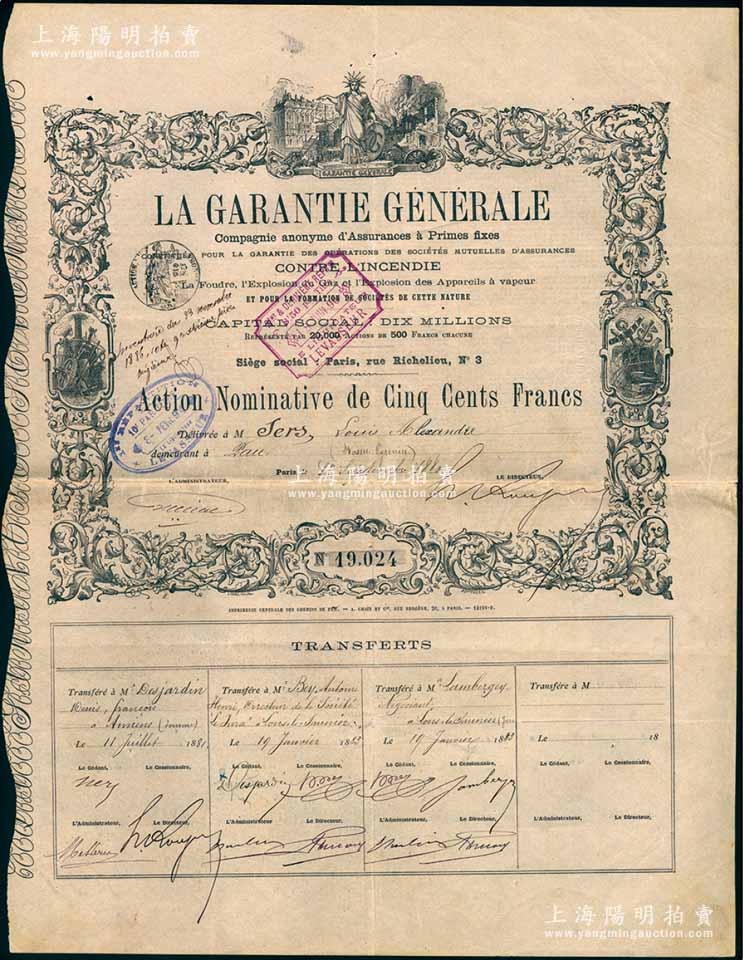 上海陽明拍賣
www.yangmingauction.com
GARANTIE GENERALE
LA GARANTIE GÉNÉRALE
Compagnie anonyme d'Assurances à Primes fixes
POUR LA GARANTIE DES OPÉRATIONS DES SOCIÉTÉS MUTUELLES D'ASSURANCES
CONTRE L'INCENDIE
La Foudre, l'Explosion du Gaz et l'Explosion des Appareils à vapeur
ET POUR LA FORMATION DE SOCIÉTÉS DE CETTE NATURE
CAPITAL SOCIAL, DIX MILLIONS
REPRÉSENTÉ PAR 20,000 ACTIONS DE 500 FRANCS CHACUNE
LEVASSEUR
Siège social à Paris, rue Richelieu, N° 3
Action Nominative de Cinq Cents Francs
Délivrée à M Sers, Louis Alexandre
demeurant à Pau
Paris
L'ADMINISTRATEUR,
LE DIRECTEUR,
上海陽明拍賣
www.yangmingauction.com
N° 19.024
IMPRIMERIE CENTRALE DES CHEMINS DE FER. — A. CHAIX ET Cie, RUE BERGÈRE, 20, A PARIS. —
TRANSFERTS
Transféré à Mr Desjardin
Denis, françois
à Amiens (Somme)
Le 11 Juillet 1881
Le Cédant, Le Cessionnaire,
L'Administrateur, Le Directeur,
Transféré à Mr Bey, Antoine
Henri, Directeur de la Société
à Lons-le-Saunier
Le 19 Janvier 188
Le Cédant, Le Cessionnaire,
Desjardin
L'Administrateur Le Directeur
Transféré à Mr Lamberger
Négociant
à Lons-le-Saunier
Le 19 Janvier 188
Le Cédant, Le Cessionnaire,
L'Administrateur, Le Directeur,
Transféré à M
à
Le 18
Le Cédant, Le Cessionnaire,
L'Administrateur, Le Directeur,
上海陽明拍賣
www.yangmingauction.com